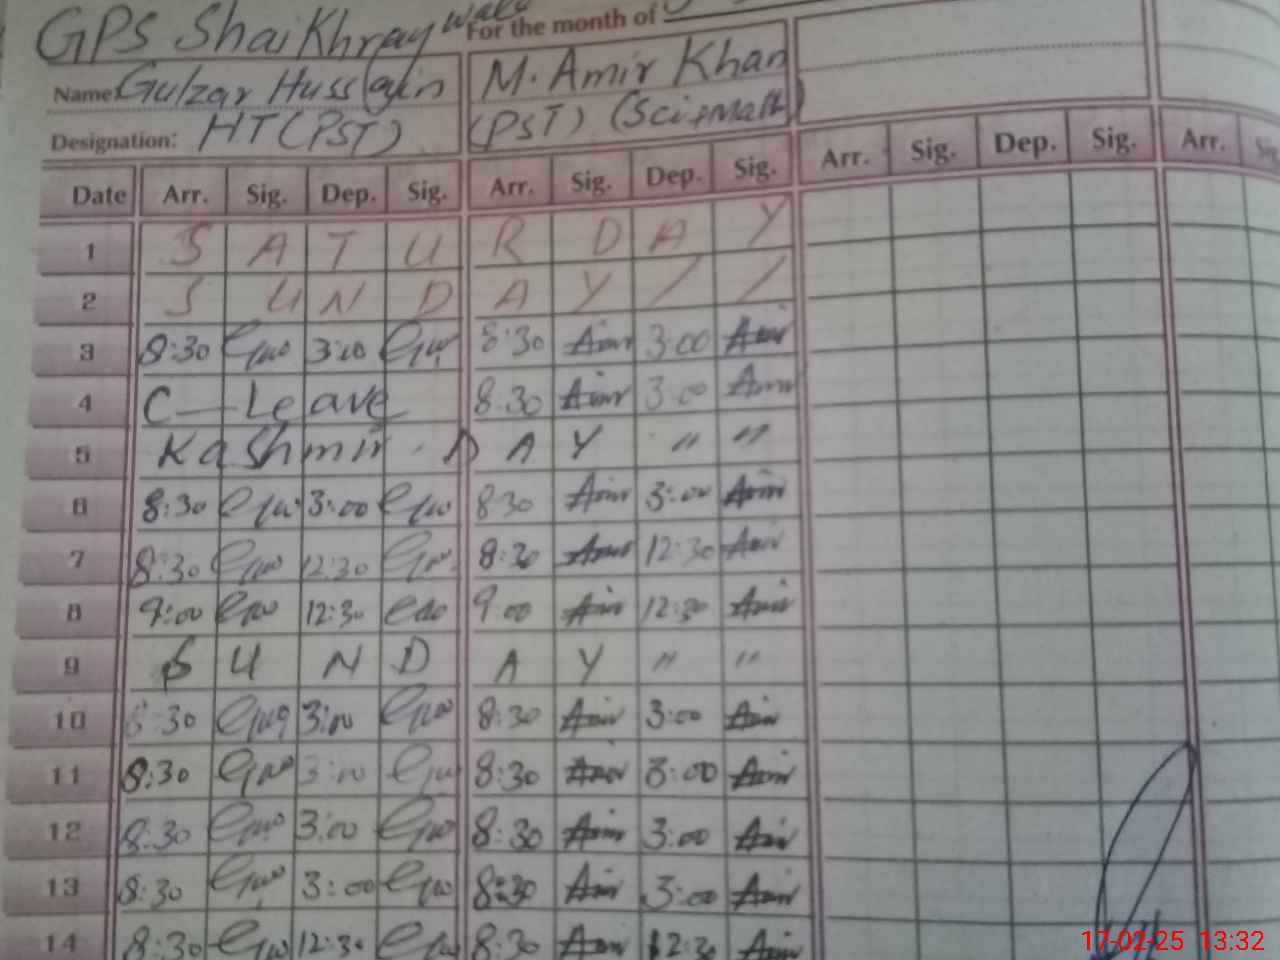 GPS Shaikhraywala For the month of
Name: Gulzar Hussain M. Amir Khan
Designation: HT (PST) (PST) (Sci+Math)
Date Arr. Sig. Dep. Sig. Arr. Sig. Dep. Sig. Arr. Sig. Dep. Sig. Arr. Sig
1 S A T U R D A Y
2 S U N D A Y / /
3 8:30 3:00 8:30 Amir 3:00 Amir
4 C — Leave 8.30 Amir 3:00 Amir
5 Kashmir - D A Y " "
6 8:30 3:00 8:30 Amir 3:00 Amir
7 8:30 12:30 8:30 Amir 12:30 Amir
8 9:00 12:30 9:00 Amir 12:30 Amir
9 S U N D A Y " "
10 8:30 3:00 8:30 Amir 3:00 Amir
11 8:30 3:00 8:30 Amir 3:00 Amir
12 8:30 3:00 8:30 Amir 3:00 Amir
13 8:30 3:00 8:30 Amir 3:00 Amir
14 8:30 12:30 8:30 Amir 12:30 Amir
17-02-25 13:32